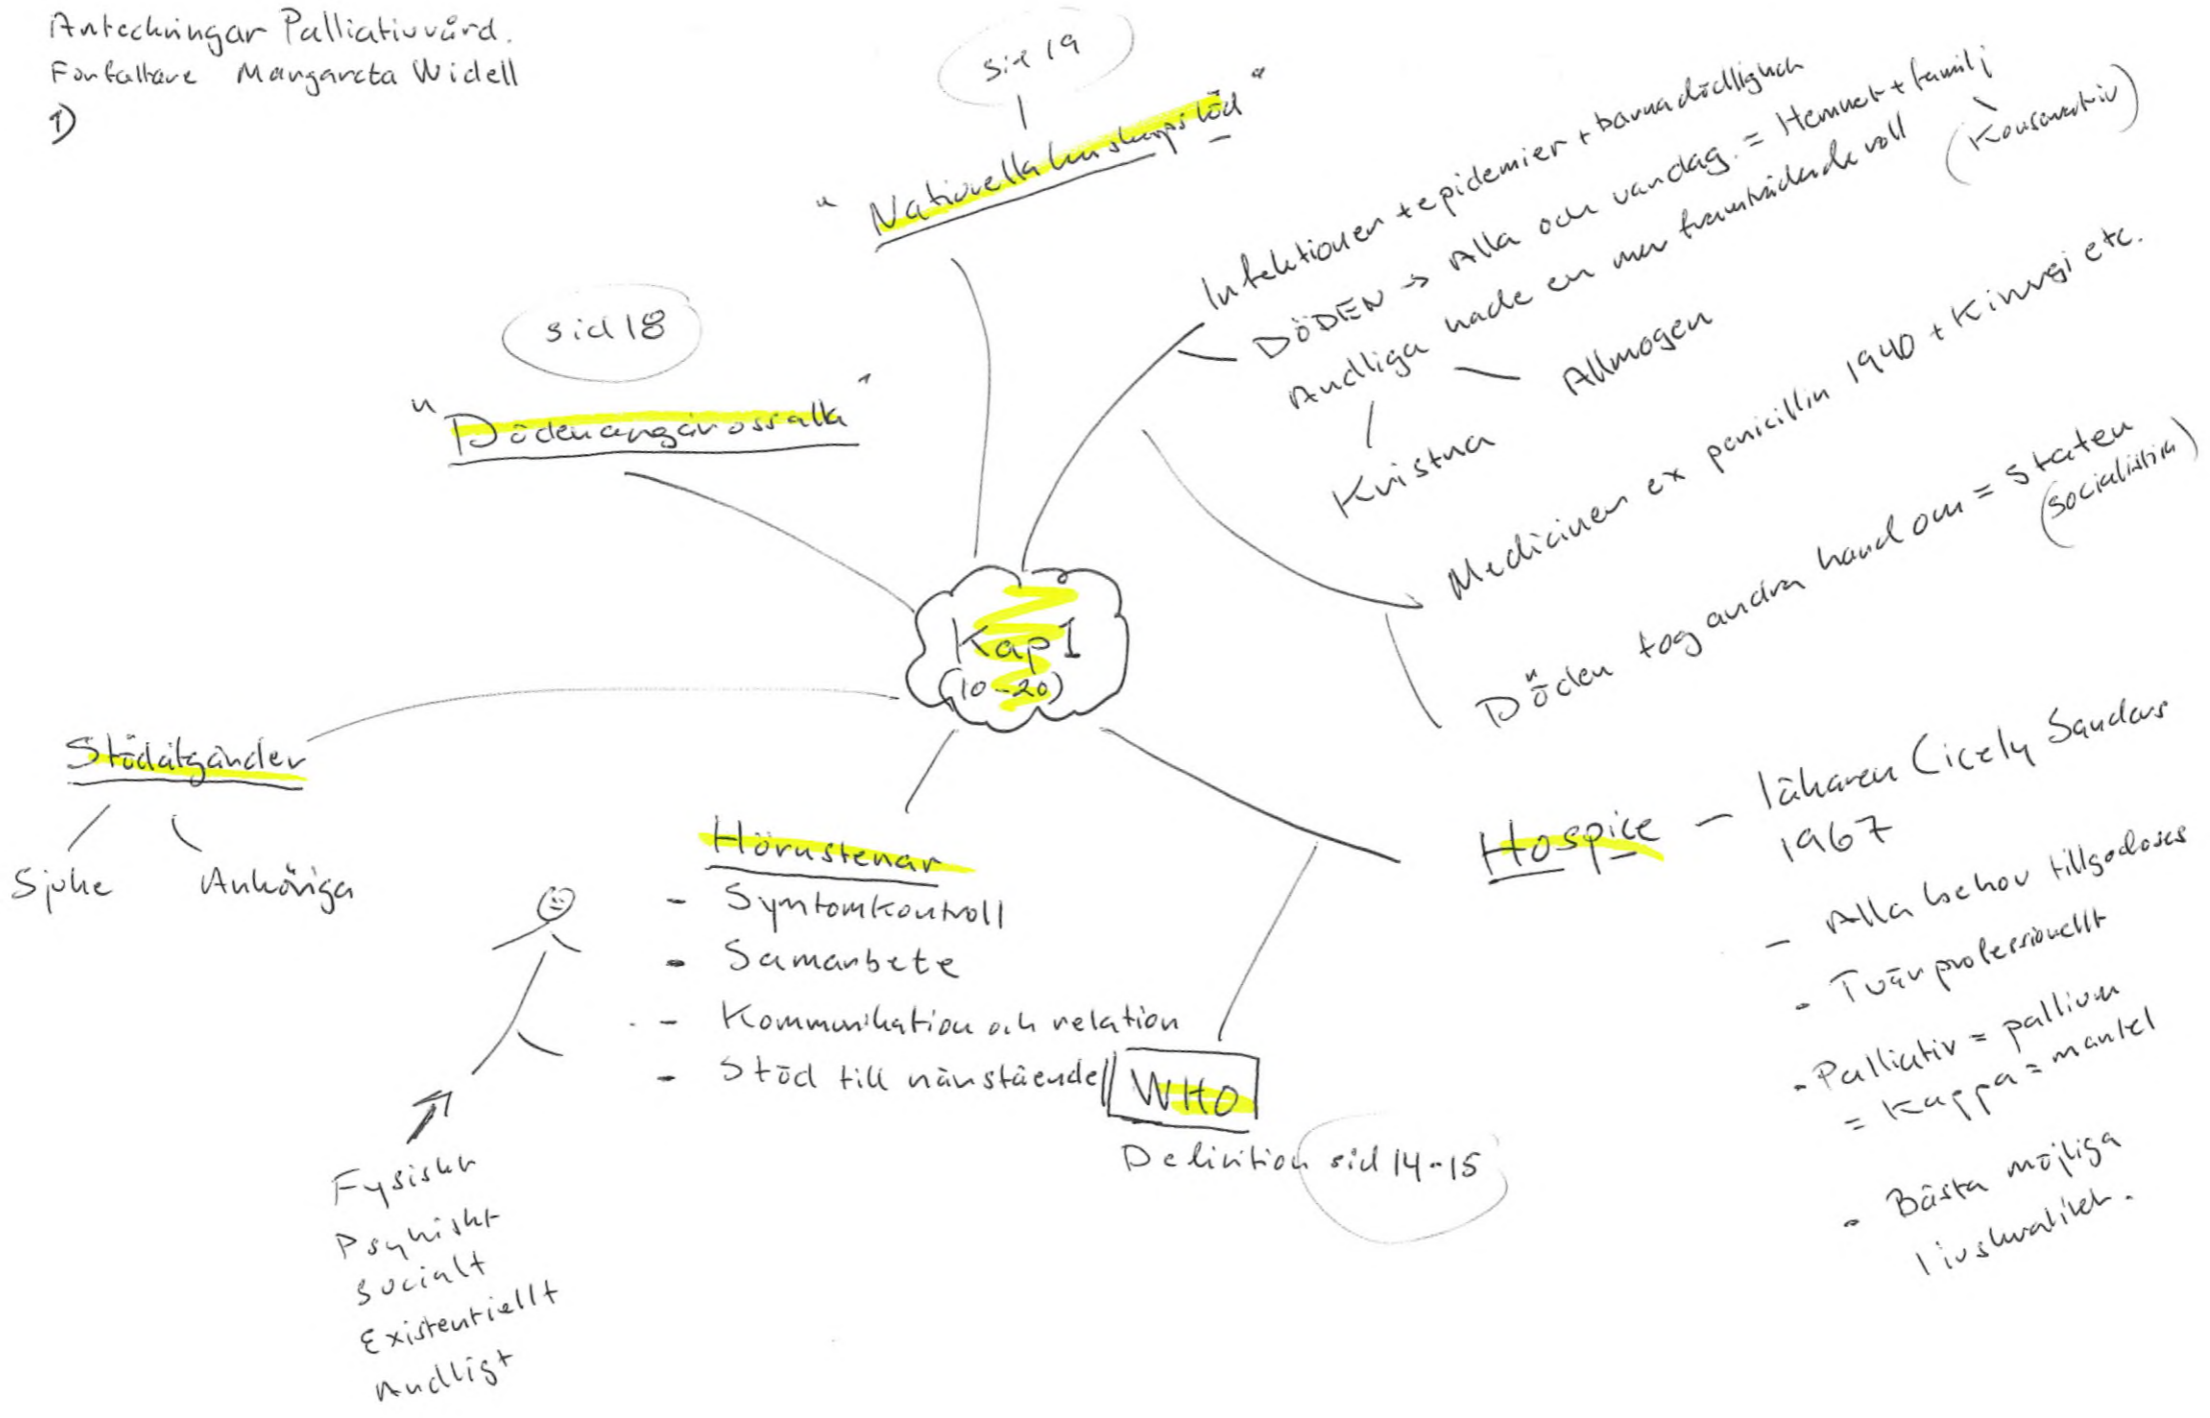 Anteckningar Palliativvård.
Författare Margareta Widell
1)
sid 19
"Nationella kunskapsstöd"
sid 18
"Döden angår oss alla"
Infektioner + epidemier + barnadödlighet
DÖDEN → Alla och vardag. = Hemmet + familj
(Konservativ)
Andliga hade en mer framträdande roll
Allmogen
Kristna
Medicinen ex penicillin 1940 + Kirurgi etc.
Döden tog andra hand om = Staten
(socialistisk)
Kap 1
(10-20)
Stödåtgärder
Sjuke
Anhöriga
Hörnstenar
- Symtomkontroll
- Samarbete
- Kommunikation och relation
- Stöd till närstående
Fysiskt
Psykiskt
Socialt
Existentiellt
Andligt
WHO
Definition sid 14-15
Hospice - läkaren Cicely Sanders
1967
- Alla behov tillgodoses
- Tvärprofessionellt
- Palliativ = pallium
= Kappa = mantel
- Bästa möjliga
livskvalitet.